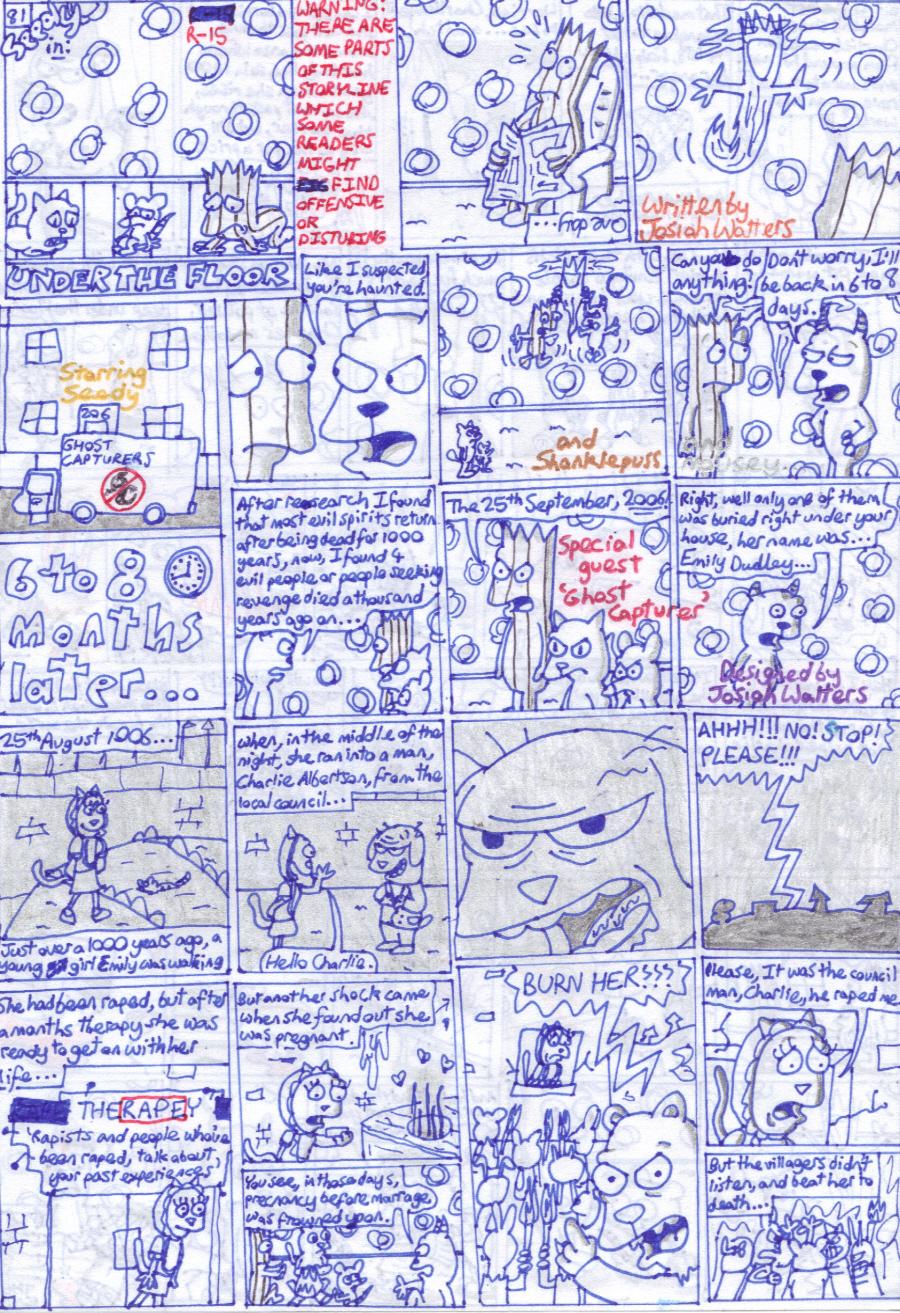 81
Seedy
in:
R-15
UNDER THE FLOOR
WARNING:
THERE ARE
SOME PARTS
OF THIS
STORYLINE
WHICH
SOME
READERS
MIGHT
FIND
OFFENSIVE
OR
DISTURING
Written by
Josiah Watters
Starring
Seedy
206
GHOST
CAPTURERS
Like I suspected
you're haunted.
and
Shanklepuss
Can you do
anything?
Don't worry, I'll
be back in 6 to 8
days.
and
Mousey.
6 to 8
months
later...
After research, I found
that most evil spirits return
after being dead for 1000
years, now, I found 4
evil people or people seeking
revenge died a thousand
years ago on...
The 25th September, 2006!
Special
guest
'Ghost
Capturer'
Right, well only one of them
was buried right under your
house, her name was...
Emily Dudley...
Designed by
Josiah Watters
25th August 1006...
Just over a 1000 years ago, a
young girl Emily was walking
when, in the middle of the
night, she ran into a man,
Charlie Albertson, from the
local council...
Hello Charlie.
AHHH!!! NO! STOP!
PLEASE!!!
She had been raped, but after
a months therapy she was
ready to get on with her
life...
THERAPEY
'Rapists and people who've
been raped, talk about
your past experiences'
But another shock came
when she found out she
was pregnant.
You see, in those days,
pregnancy before marrage,
was frowned upon.
BURN HER!!!
Please, It was the council
man, Charlie, he raped me
But the villagers didn't
listen, and beat her to
death...